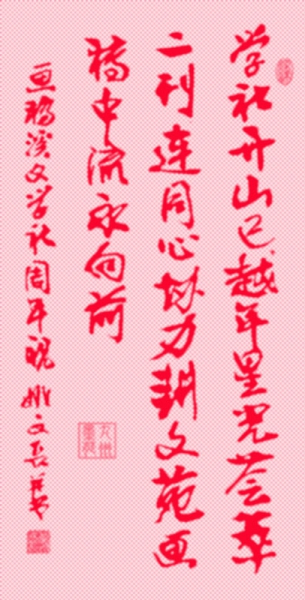 学社开山已越年星光荟萃
二刊连同心协力耕文苑画
稿中流永向前
画稿溪文学社周年祝 姚文长并书